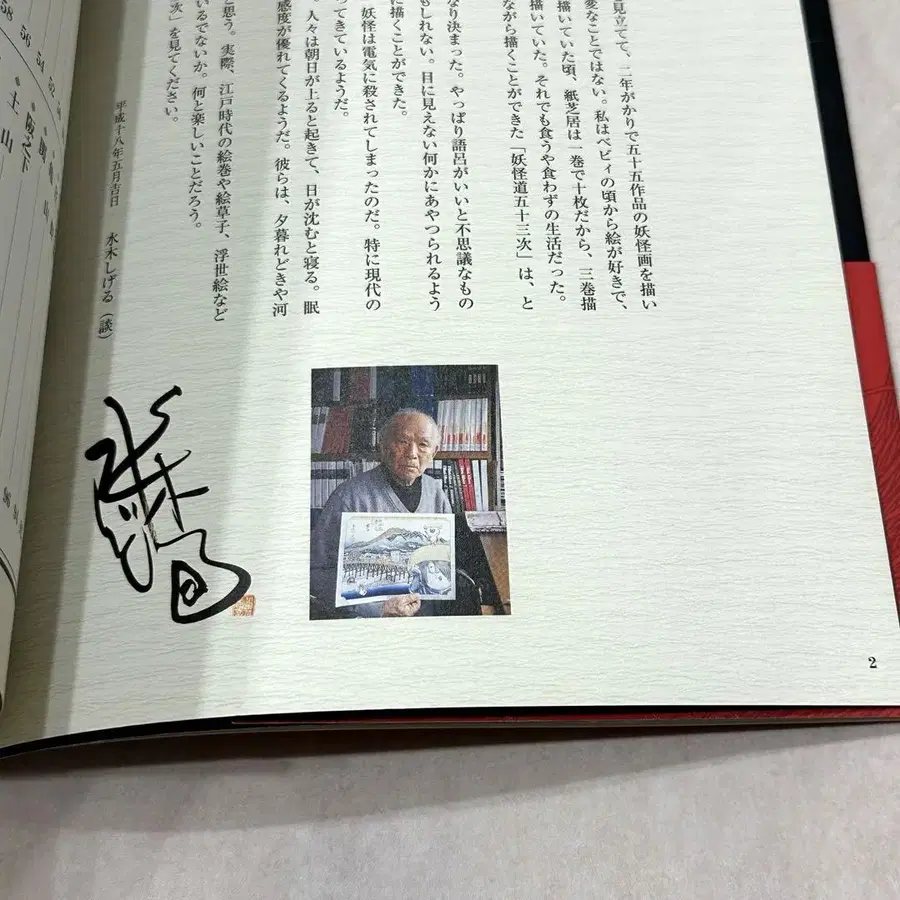 見立てて、二年がかりで五十五作品の妖怪画を描い
変なことではない。私はベビィの頃から絵が好きで、
描いていた頃、紙芝居は一巻で十枚だから、三巻描
描いていた。それでも食うや食わずの生活だった。
ながら描くことができた「妖怪道五十三次」は、と
なり決まった。やっぱり語呂がいいと不思議なもの
もしれない。目に見えない何かにあやつられるよう
に描くことができた。
妖怪は電気に殺されてしまったのだ。特に現代の
ってきているようだ。
。人々は朝日が上ると起きて、日が沈むと寝る。眠
感度が優れてくるようだ。彼らは、夕暮れどきや河
と思う。実際、江戸時代の絵巻や絵草子、浮世絵など
いるでないか。何と楽しいことだろう。
次」を見てください。
平成十八年五月吉日 水木しげる（談）
水木
2
52
54
56
58
阪之下
土山